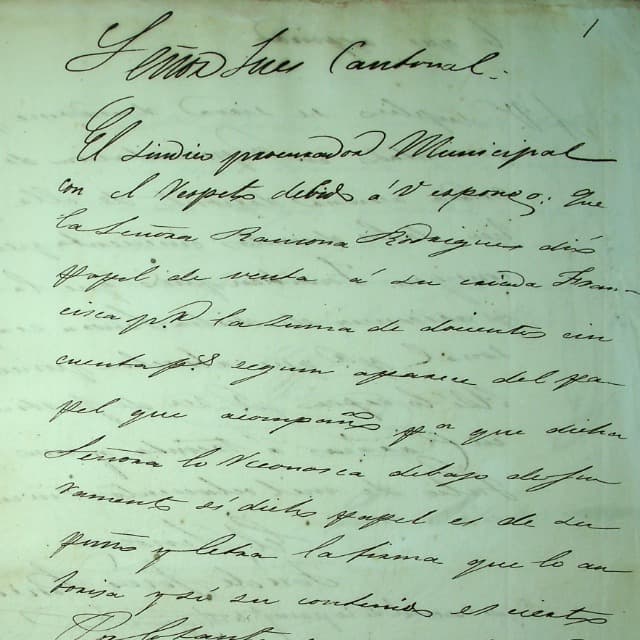 1
Señor Jues Cantonal.
El síndico procurador Municipal
con el respeto debido á V espongo: Que
la Señora Ramona Rodrigues dió
papel de venta á su criada Fran-
cisca pr. la suma de docientos cin
cuenta ps. segun aparece del pa-
pel que acompaño pa. que dicha
Señora lo reconosca debajo de ju
ramento si dicho papel es de su
puño y letra la firma que lo au
torisa y si su contenido es cierto
Por lo tanto